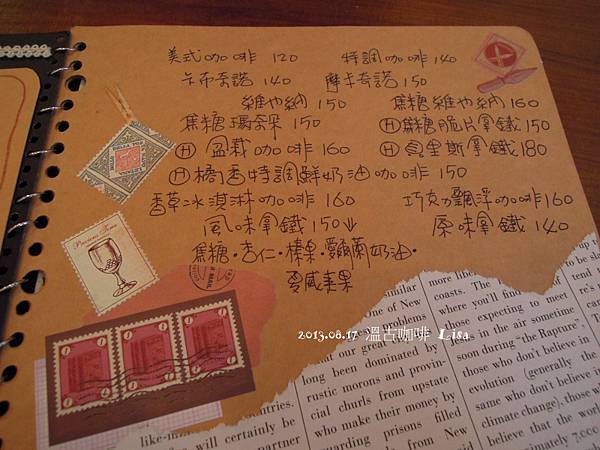 美式咖啡 120 特調咖啡 140
卡布奇諾 140 摩卡奇諾 150
維也納 150 焦糖維也納 160
焦糖瑪奇朵 150 Ⓗ焦糖脆片拿鐵 150
Ⓗ 盆栽咖啡 160 Ⓗ 貝里斯拿鐵 180
Ⓗ橘香特調鮮奶油咖啡 150
香草冰淇淋咖啡 160 巧克力飄浮咖啡 160
風味拿鐵 150↓ 原味拿鐵 140
焦糖·杏仁·榛果·愛爾蘭奶油·
夏威夷果
2013.08.17 溫古咖啡 Lisa
One of New
problems
our great
long been dominated by
rustic morons and provin-
cial churls from upstate
who make their money by
guarding prisons filled
from New
like-
will certainly be
partner
more like
coasts. The
where you'll find
expecting to meet
in the air sometime
soon during "the Rapture",
those who don't believe in
evolution (generally the
same who don't believe in
climate change), those who
believe that the world
7,000